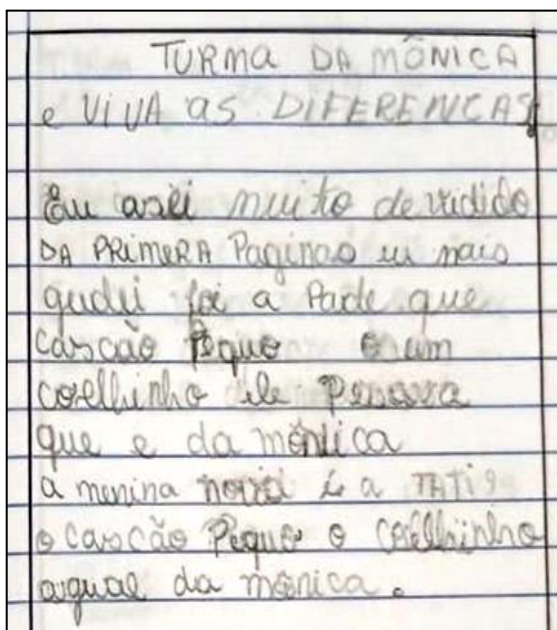 TURMA DA MÔNICA
e VIVA as DIFERENCAS
Eu axei muito devidido
DA PRIMERA Paginas eu mais
gudei foi a Pade que
cascão Pequo o um
coelhinho ele Pensava
que e da mônica
a menina nova é a TATI
o cascão Pequo o coelhinho
agual da mônica.